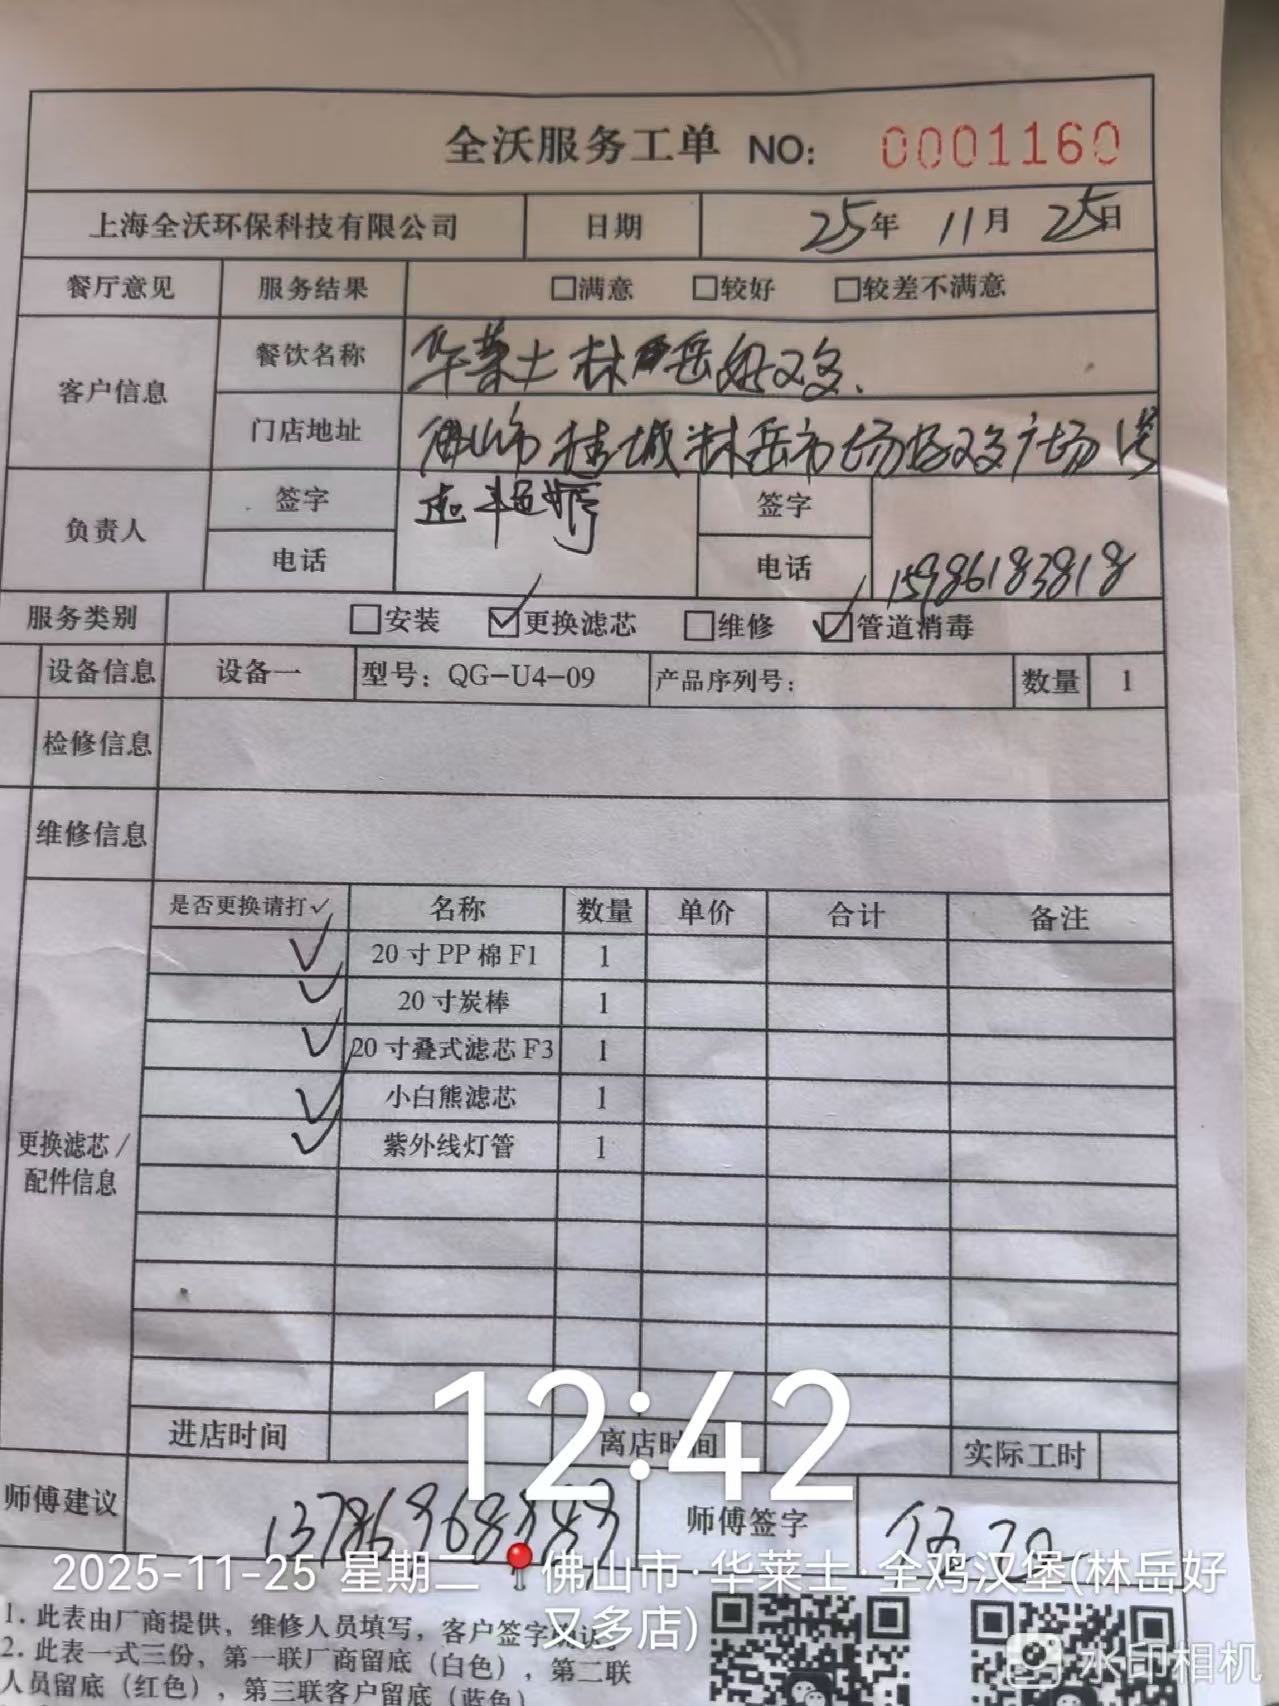 全沃服务工单 NO: 0001160
上海全沃环保科技有限公司 日期 25年 11月 25日
餐厅意见 服务结果 □满意 □较好 □较差不满意
客户信息 餐饮名称 华莱士林岳好又多.
门店地址 佛山市桂城林岳市场好又多广场
负责人 签字 签字
电话 电话 15986183818
服务类别 □安装 ☑更换滤芯 □维修 ☑管道消毒
设备信息 设备一 型号：QG-U4-09 产品序列号： 数量 1
检修信息
维修信息
是否更换请打✓ 名称 数量 单价 合计 备注
✓ 20寸PP棉F1 1
✓ 20寸炭棒 1
✓ 20寸叠式滤芯F3 1
✓ 小白熊滤芯 1
✓ 紫外线灯管 1
更换滤芯/
配件信息
12:42
进店时间 离店时间 实际工时
师傅建议 师傅签字
2025-11-25 星期二 佛山市·华莱士·全鸡汉堡(林岳好
又多店)
1. 此表由厂商提供，维修人员填写，客户签字确认
2. 此表一式三份，第一联厂商留底（白色），第二联
人员留底（红色），第三联客户留底（蓝色）
水印相机